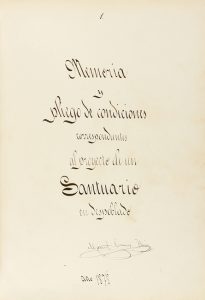 1
Memoria
y
pliego de condiciones
correspondientes
al proyecto de un
Santuario
en despoblado
Año 1878